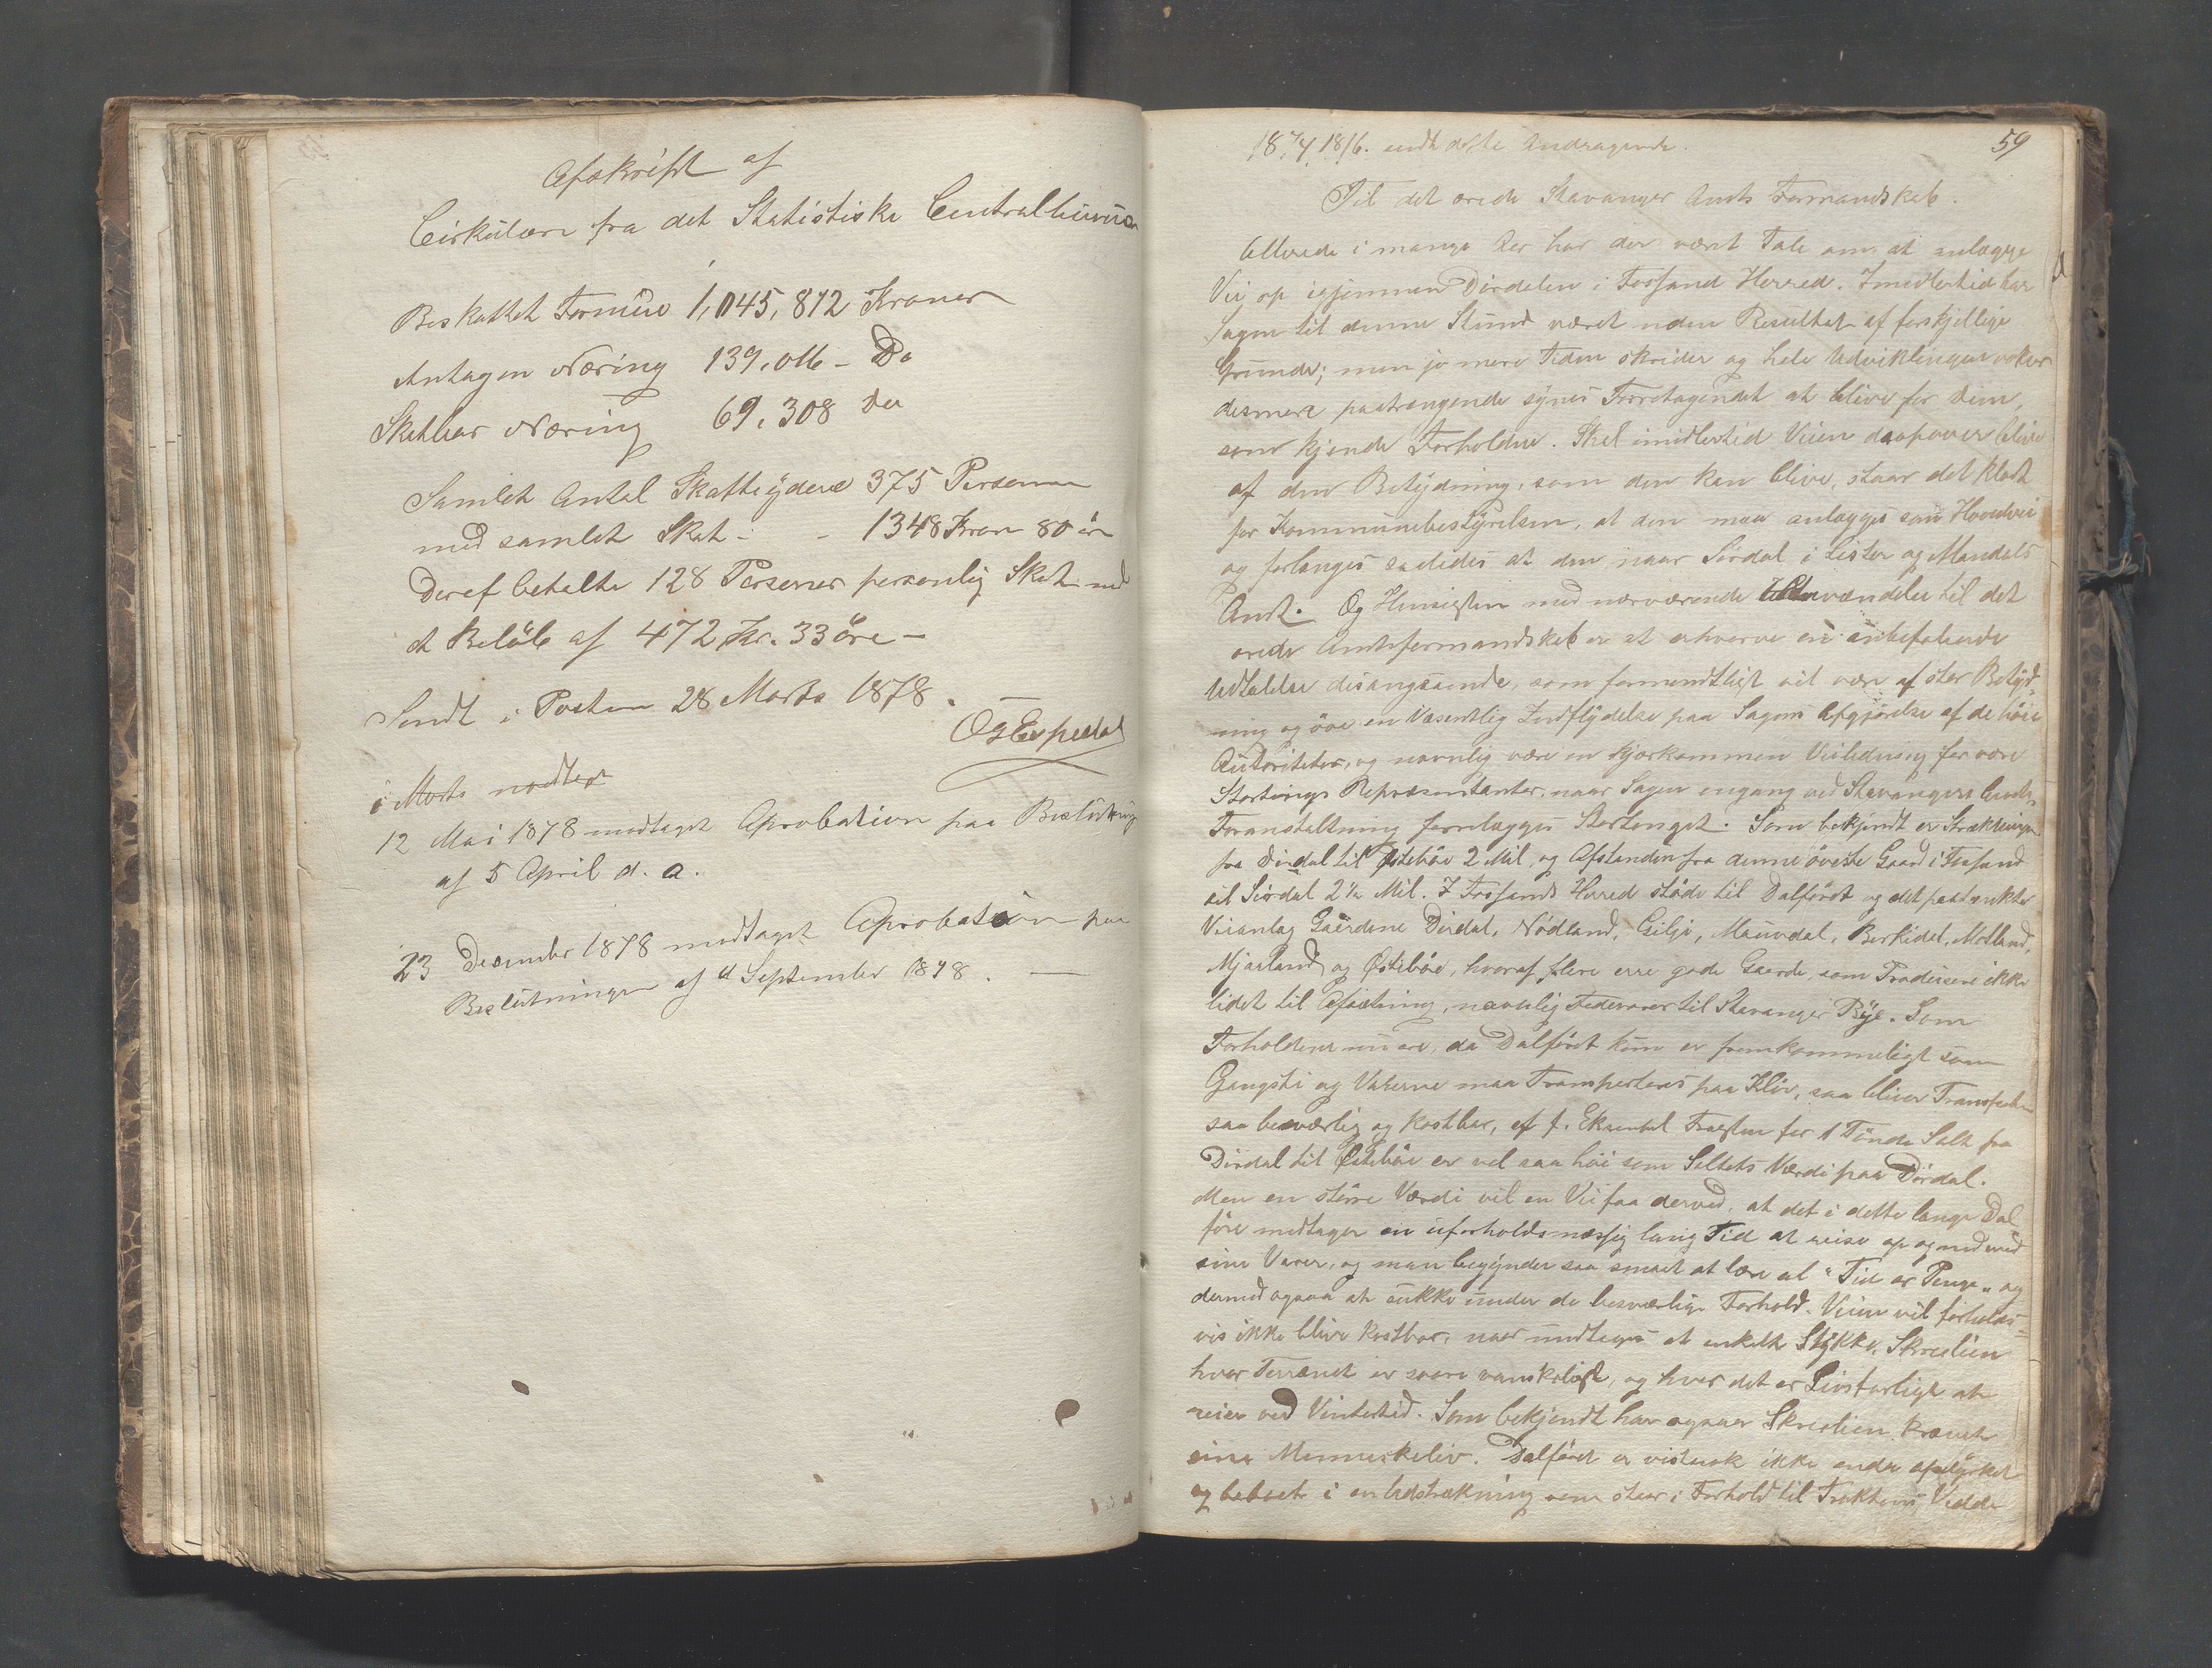 Afskrift af
Cirkulære fra det Statistiske Centralbureau
Beskattet Formue 1,045,812 Kroner
Antagen Næring 139,016 - Do
Skatbar Næring 69,308 Do
Samlet Antal Skatteydere 375 Personer
med samlet Skat - - 1348 Kron 80 ör
Deraf betalte 128 Personer personlig Skat med
et Beløb af 472 Kr. 33 öre -
Sendt i Posten 28 Marts 1878.
i Marts modtaget
12 Mai 1878 modtaget Aprobation paa Beslutning
af 5 April d. a.
23 December 1878 modtaget Aprobation paa
Beslutningen af September 1878. -
59
18 7/4 18/6. sendt dette Andragende.
Til det ærede Stavanger Amts Formandskab.
Allerede i mange Aar har der været Tale om at anlægge
Vei op igjennem Dirdalen i Fossand Herred. Imidlertid har
Sagen til denne Stund været uden Resultat af forskjellige
Grunde; men jo mere Tiden skrider og hele Udviklingen vokser
desmere paatrængende synes Foretagendet at blive for dem,
som kjende Forholdene. Skal imidlertid Veien blive
af den Betydning, som den kan blive, staar det klart
for Kommunebestyrelsen, at den maa anlægges som Hovedvei
og forlænges saaledes at den naar Sirdal i Lister og Mandals
Amt. Og Hensigten med nærværende Henvendelse til det
ærede Amtsformandskab er at erhverve en anbefalende
Udtalelse desangaaende, som formentligt vil være af stor Betyd-
ning og öve en Væsentlig Indflydelse paa Sagens Afgjörelse af de höie
Autoriteter, og navnlig være en kjærkommen Veiledning for vore
Stortings Repræsentanter, naar Sagen engang ved Stavangers Amts
Foranstaltning forelægges Stortinget. Som bekjendt er Strækningen
fra Dirdal til Østeböe 2 Mil, og Afstanden fra denne överste Gaard i Fossand
til Sirdal 2½ Mil. I Fossands Herred støde til Dalføret og det paatænkte
Veianlæg Gaardene Dirdal, Nödland, Gilje, Maudal, Berkedal, Molland,
Mjaaland og Østeböe, hvoraf flere ere gode Gaarde, som Producere ikke
lidet til Afsætning, navnlig Fedevarer til Stavanger Bye. Som
Forholdene nu ere, da Dalföret kun er fremkommeligt som
Gangsti og Varerne maa Transporteres paa Klöv, saa bliver Transporten
saa besværlig og kostbar, at f. Eksempel Fragten for 1 Tönde Salt fra
Dirdal til Østeböe er vel saa höi som Saltets Værdi paa Dirdal.
Men en större Værdi vil en Vei faa derved, at det i dette lange Dal
före medtager en uforholdsmæssig lang Tid at reise op og ned med
sine Varer, og man begynder saa smaat at lære at "Tid er Penge" og
dermed ogsaa at sukke under de besværlige Forhold. Veien vil forholds-
vis ikke blive kostbar, naar undtages et enkelt Stykke, Skreelien
hvor Terrænet er saare vanskeligt, og hvor det er Livsfarligt at
reise ved Vintertid. Som bekjendt har ogsaa Skreelien krævet
sine Menneskeliv. Dalföret er vistnok ikke endu opdyrket
og beboet i en Udstrækning som staar i Forhold til Traktens Vidde